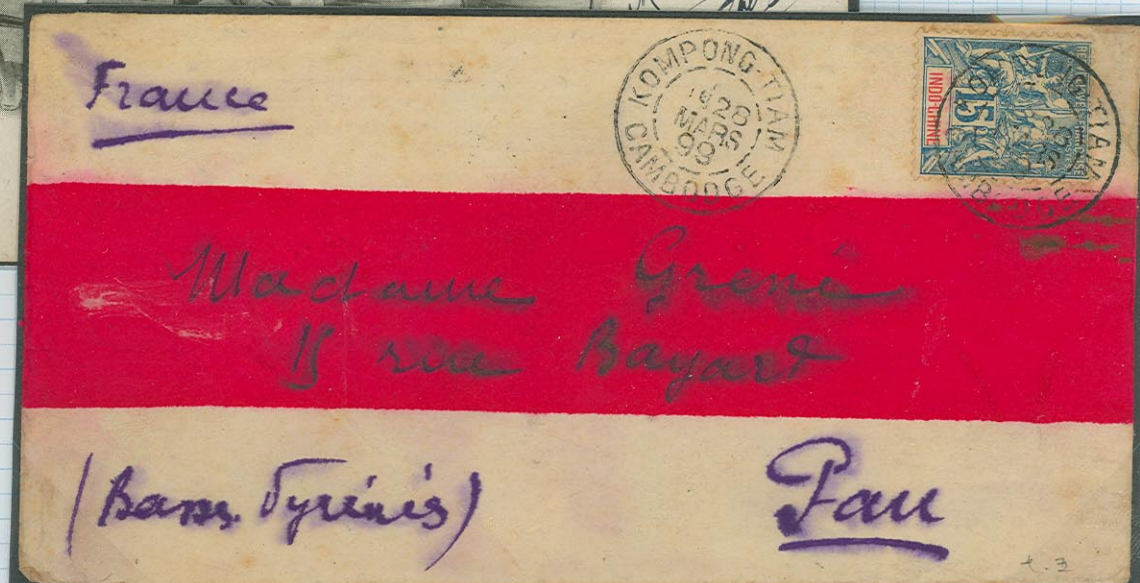 France
KOMPONG-TIAM
28
MARS
99
CAMBODGE
INDO-CHINE
15
Madame Grené
15 rue Bayard
(Basses Pyrénés) Pau